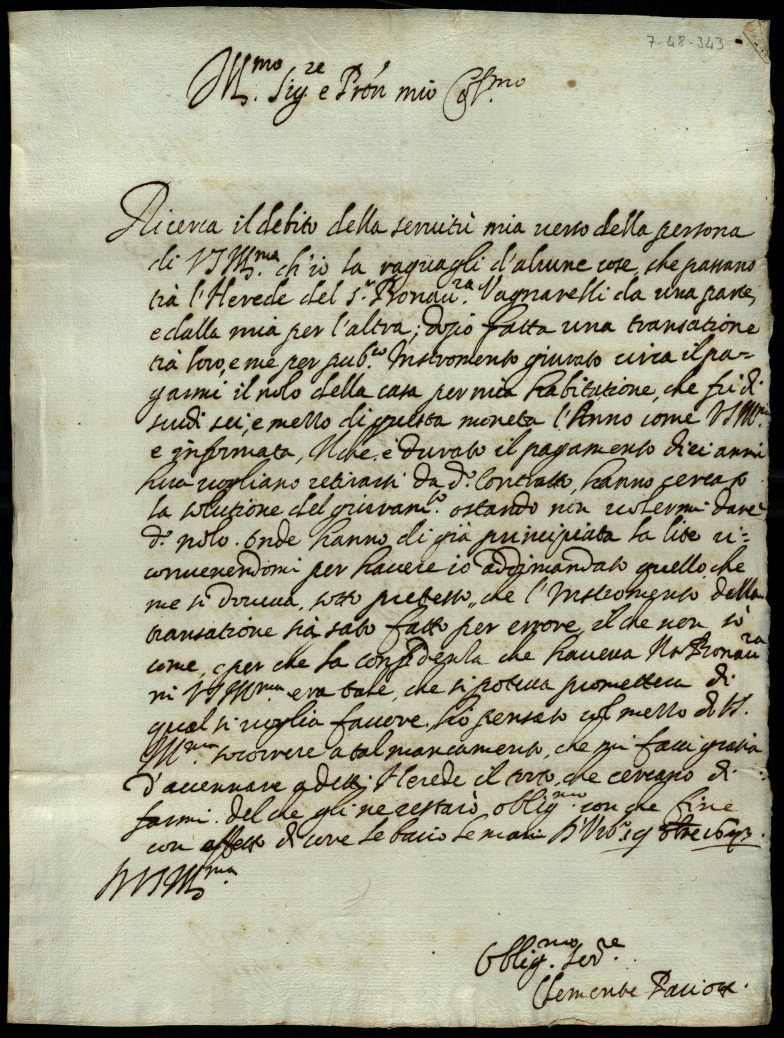 7-48-343
Ill.mo Sig.re e Pron mio Col.mo
Ricerca il debito della servitù mia verso della persona
di VS Ill.ma ch'io la raguagli d'alcune cose, che passano
trà l'Herede del S.r Bonau.ra Vagnarelli da una parte,
e dalla mia per l'altra; dopo fatta una transatione
trà loro, e me per pub.co Instromento giurato circa il pa=
garmi il nolo della casa per mia habitatione, che fù di
scudi sei, e mezzo di questa moneta l'Anno come VS Ill.ma
e informata, è durato il pagamento dieci anni
hora vogliano retirarsi da d.o Contratto, hanno cercato
la solutione del giuram.to ostando non volermi dare
d.o nolo. onde hanno di già principiata la lite ri=
convenendomi per havere io addimandato quello, che
me si doveva, sotto pretesto, che l'Instromento della
transatione sia stato fatto per errore, il che non sò
come, e per che la confidenza che haveva Bonau.ra
in VS Ill.ma era tale, che si poteva promettere di
qual si voglia favore, hò pensato col mezzo di VS.
Ill.ma socorrere a tal mancamento, che mi facci gratia
d'accennare a detti Herede il torto, che cercano di
farmi. del che gli ne restarò oblig.mo con che fine
con affetto di core le bacio le mani D'Urb.o 19
D VS Ill.ma
Oblig.mo Ser.re
Clemente